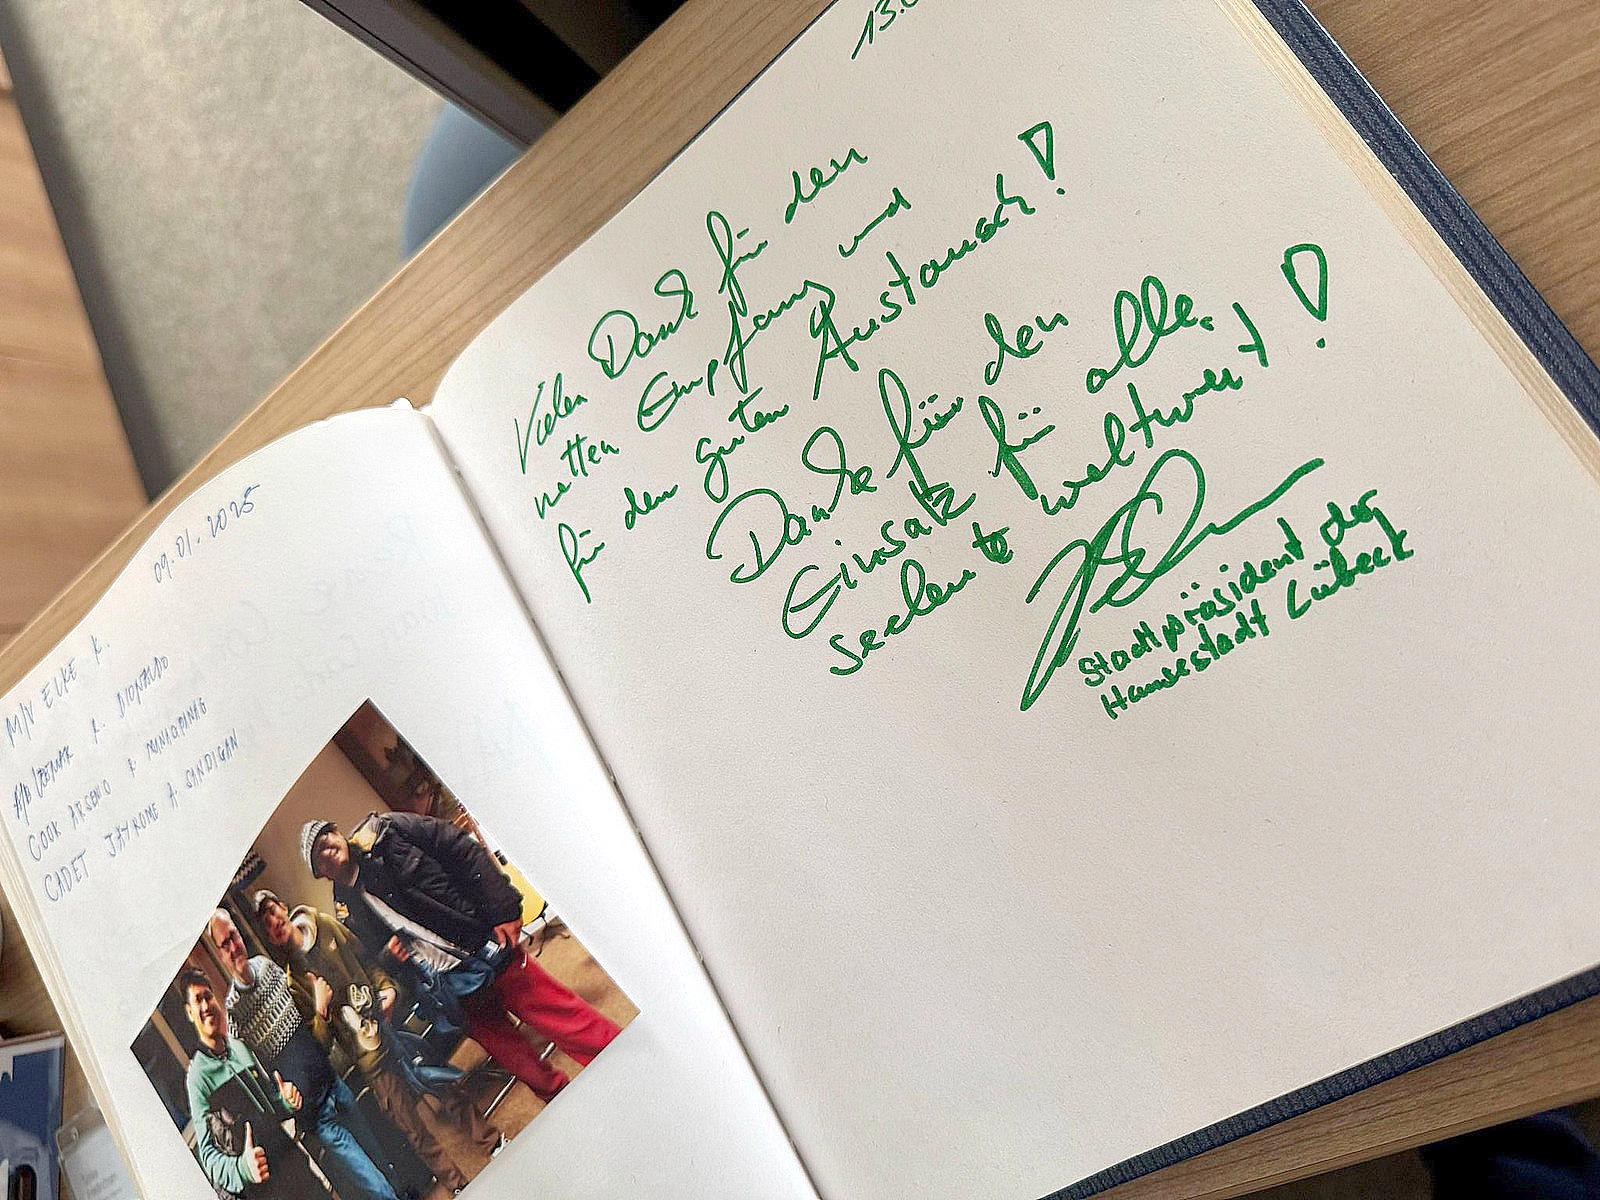 09.01.2025
M/V ELKE K.
COOK ARSENIO
CADET JAYROME A. SANDIGAN
13.0
Vielen Dank für den
netten Empfang und
für den guten Austausch!
Danke für den
Einsatz für alle
Seeleute weltweit!
Stadtpräsident der
Hansestadt Lübeck